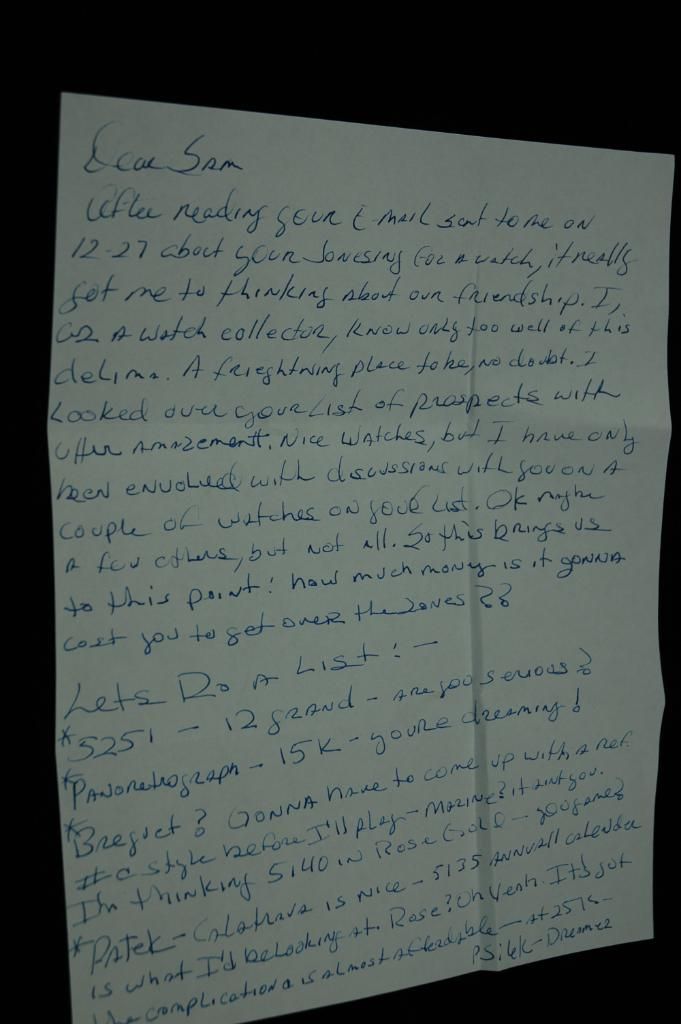 Dear Sam
After reading your E-mail sent to me on
12-27 about your Jonesing for a watch, it really
got me to thinking about our friendship. I,
as a watch collector, know only too well of this
delima. A frieghtning place to be, no doubt. I
looked over your list of prospects with
utter amazement. Nice watches, but I have only
been envolved with discussions with you on a
couple of watches on your list. Ok maybe
a few others, but not all. So this brings us
to this point: how much money is it gonna
cost you to get over the Jones??
Lets Do A List: -
*5251 - 12 grand - are you serious?
*Panoretrograph - 15K - youre dreaming!
*Breguet? Gonna have to come up with a ref.
# or style before I'll play - Marine? it aint you.
I'm thinking 5140 in Rose Gold - you game?
*Patek - Calatrava is nice - 5135 Annuall calender
is what I'd be looking at. Rose? Oh Yeah. It's got
the complication & is almost affordable - at 25 1/2 -